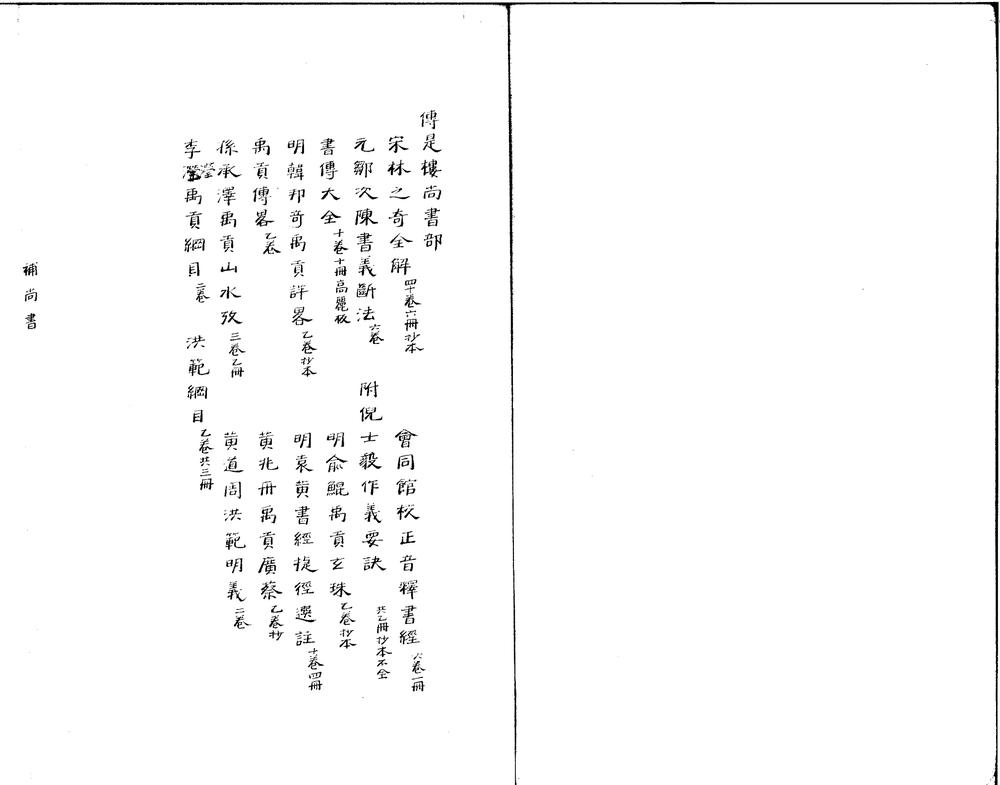 傳是樓尚書部
宋林之奇全解 四十卷六冊抄本 會同館校正音釋書經 六卷一冊
元鄒次陳書義斷法 六卷 附倪士毅作義要訣 共乙冊抄本不全
書傳大全 十卷十冊高麗板 明俞鯤禹貢玄珠 乙卷抄本
明韓邦奇禹貢詳畧 乙卷抄本 明袁黄書經捷徑選註 十卷四冊
禹貢傳畧 乙卷 黄兆冊禹貢廣蔡 乙卷抄
孫承澤禹貢山水攷 三卷乙冊 黄道周洪範明義 二卷
李瀅禹貢綱目 二卷 洪範綱目 乙卷共三冊
補尚書